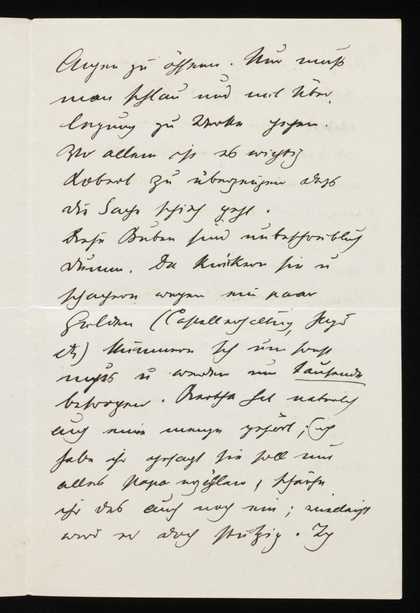 Augen zu öffnen. Nur muß
man schlau und mit Über-
legung zu Werke gehen.
Vor allem ist es wichtig
Robert zu überzeugen daß
die Sache schief geht.
Diese Buben sind unbeschreiblich
dumm. Da sie u
schachern wegen ein paar
Gulden (Castellerhaltung, Jagd
etc) kümmern sich um sonst
nichts u werden um Tausende
betrogen. Bertha hat natürlich
auch eine menge gehört; ich
habe ihr gesagt sie soll nur
alles Papa erzählen, schärfe
ihr das auch noch ein; vielleicht
wird er doch stutzig. Ich